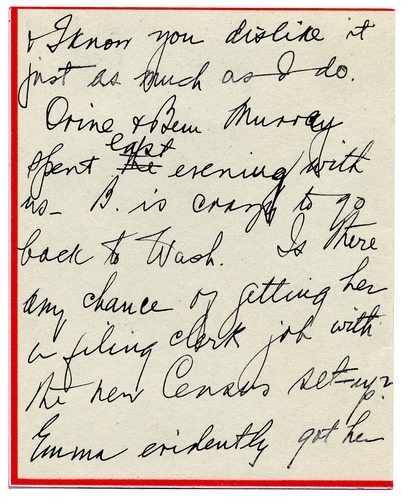 & I know you dislike it
just as much as I do.
Orine & Bem Murray
last
spent the evening with
us - B. is crazy to go
back to Wash. Is there
any chance of getting her
a filing clerk job with
the new Census set-up?
Emma evidently got her